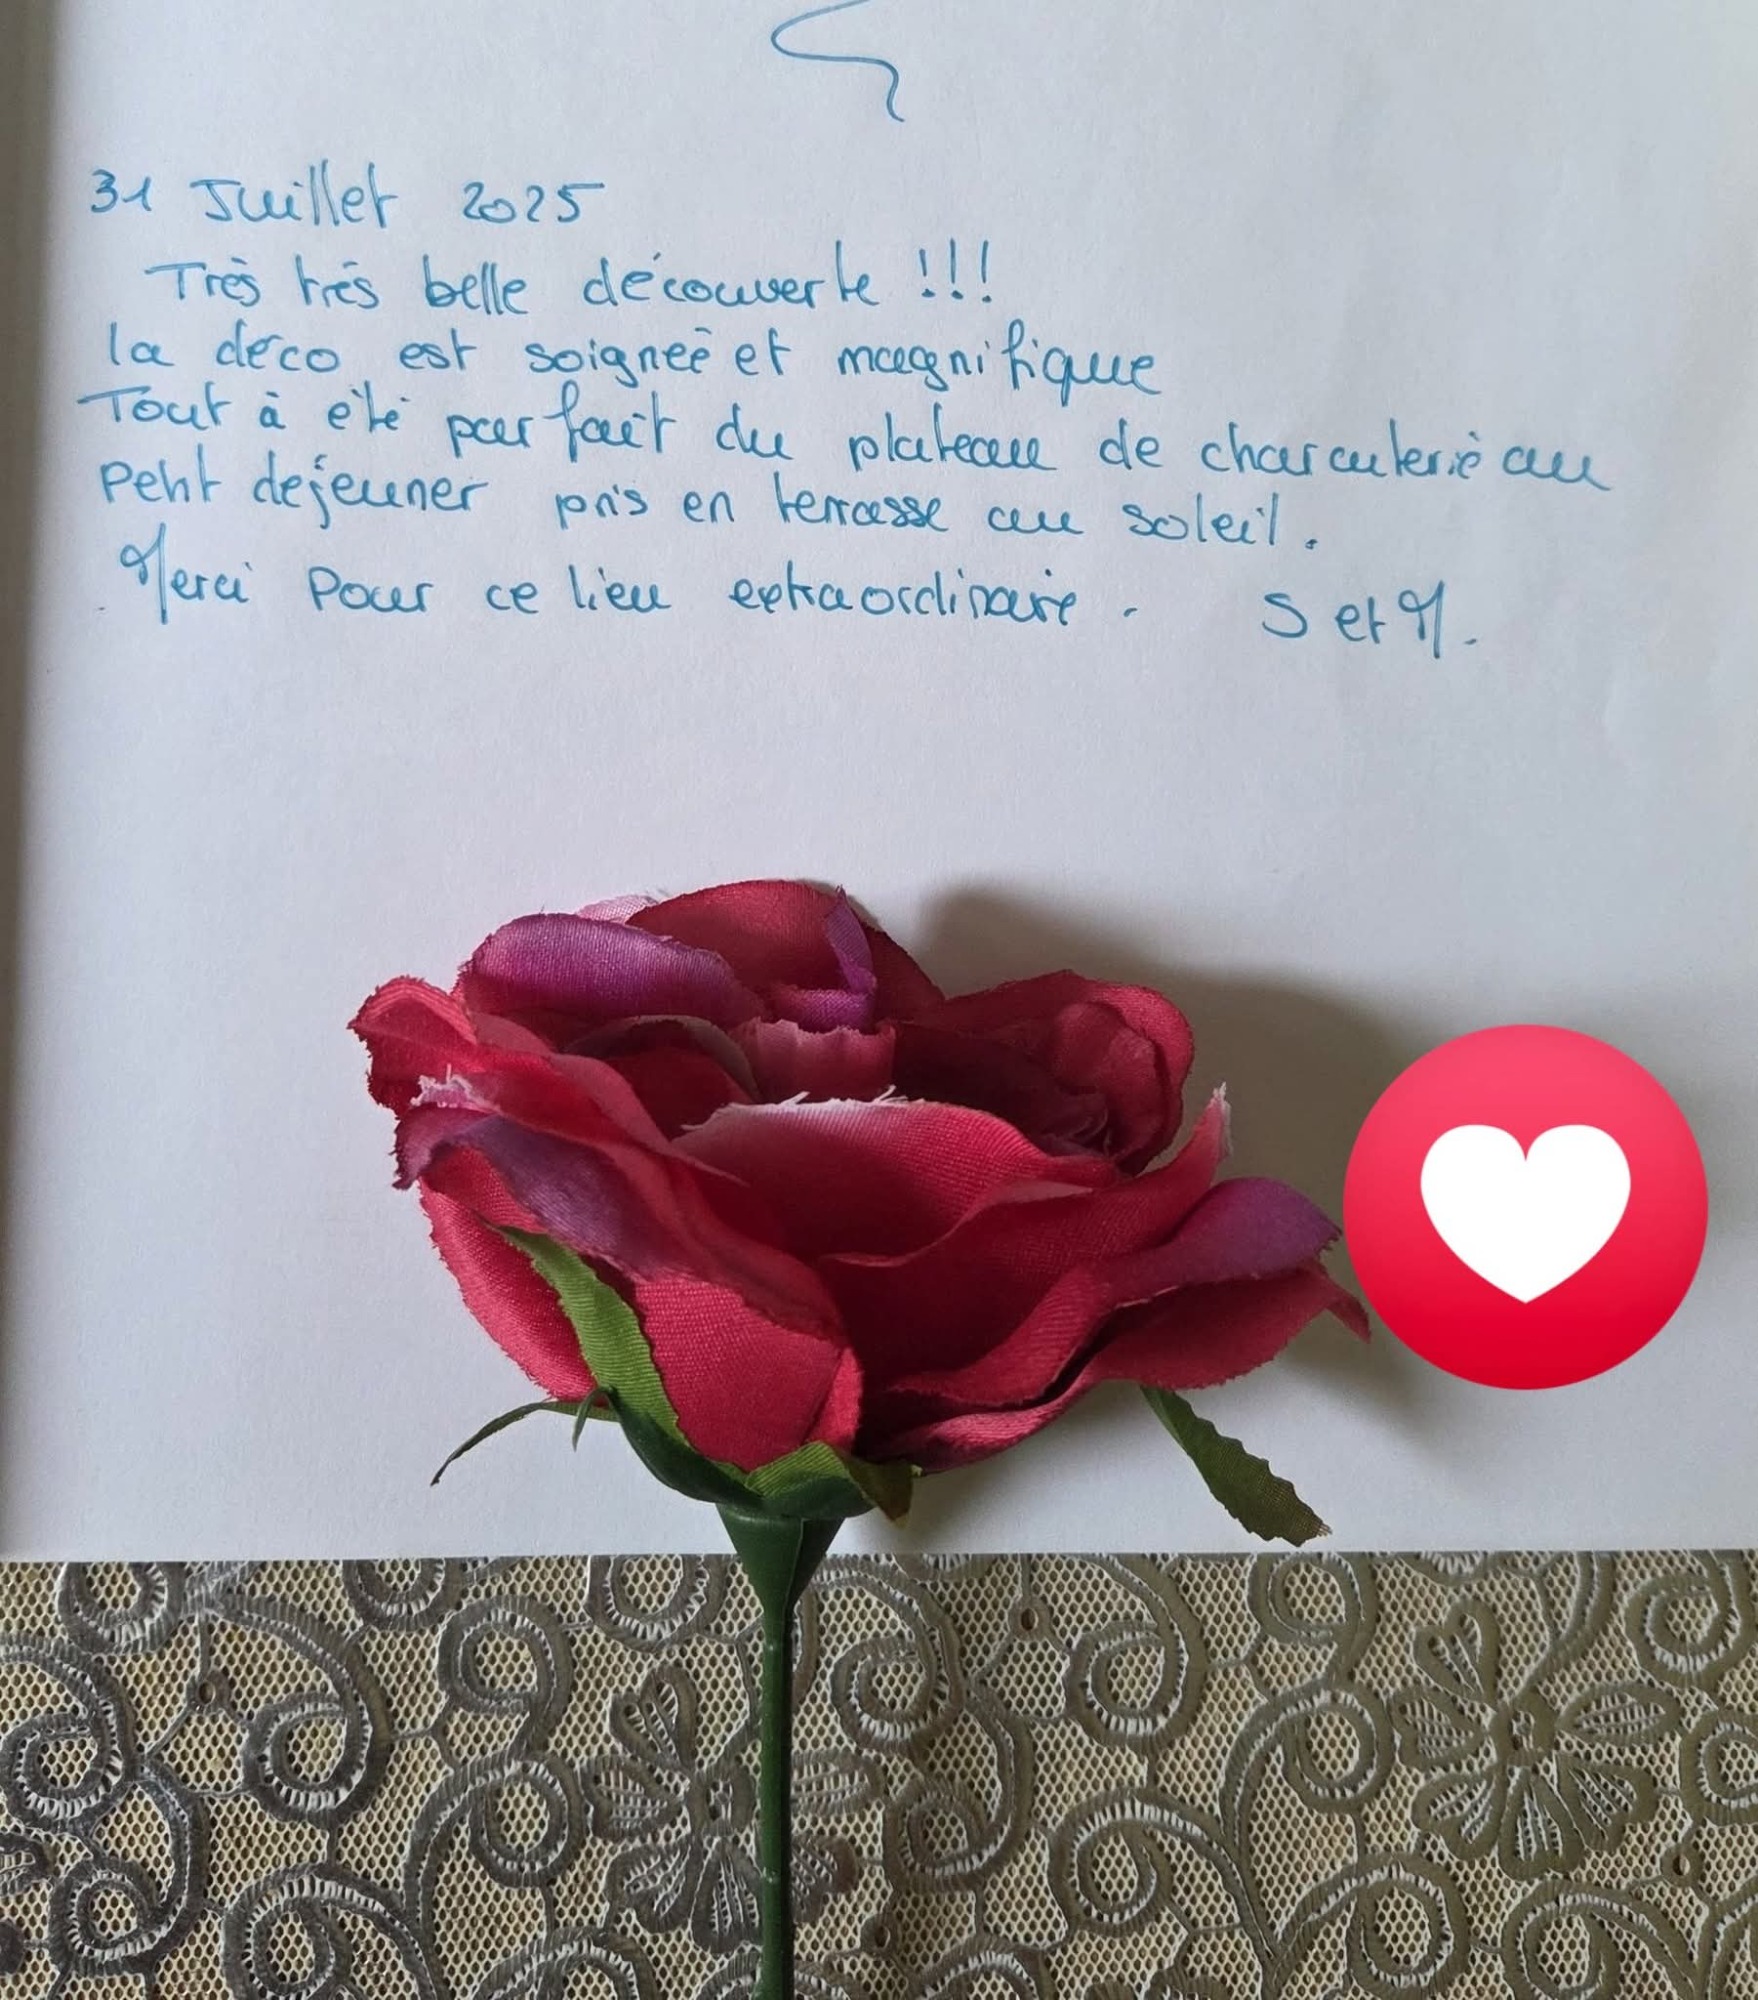 31 Juillet 2025
Très très belle découverte !!!
la déco est soignée et magnifique
Tout à été parfait du plateau de charcuterie au
petit dejeuner pris en terrasse au soleil.
Merci Pour ce lieu extraordinaire. S et M.